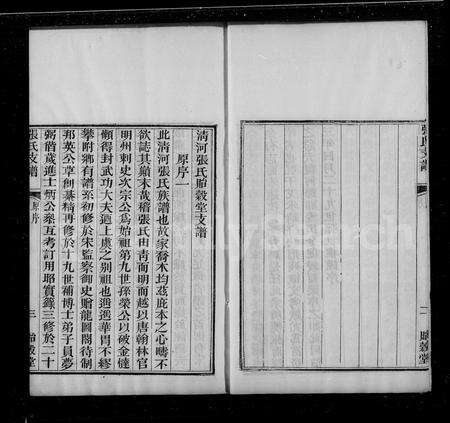 清河張氏貽穀堂支譜
原序一
此清河張氏族譜也故家喬木均茲庇本之心疇不
欲誌其顚末哉稽張氏由靑而明而越以唐翰林官
明州刺史次宗公爲始祖第九世孫榮公以破金㺚
頼得封武功大夫迺上虞之别祖也遞遞華胄不繆
攀附鄉有譜系初修於宋監察御史贈龍圖閣待制
邦英公草創纂輯再修於十九世補博士弟子員夢
弼偕歲進士炳公彙互考訂用昭實錄三修於二十
張氏支譜
原序
三
貽穀堂
張氏支譜
二
貽穀堂